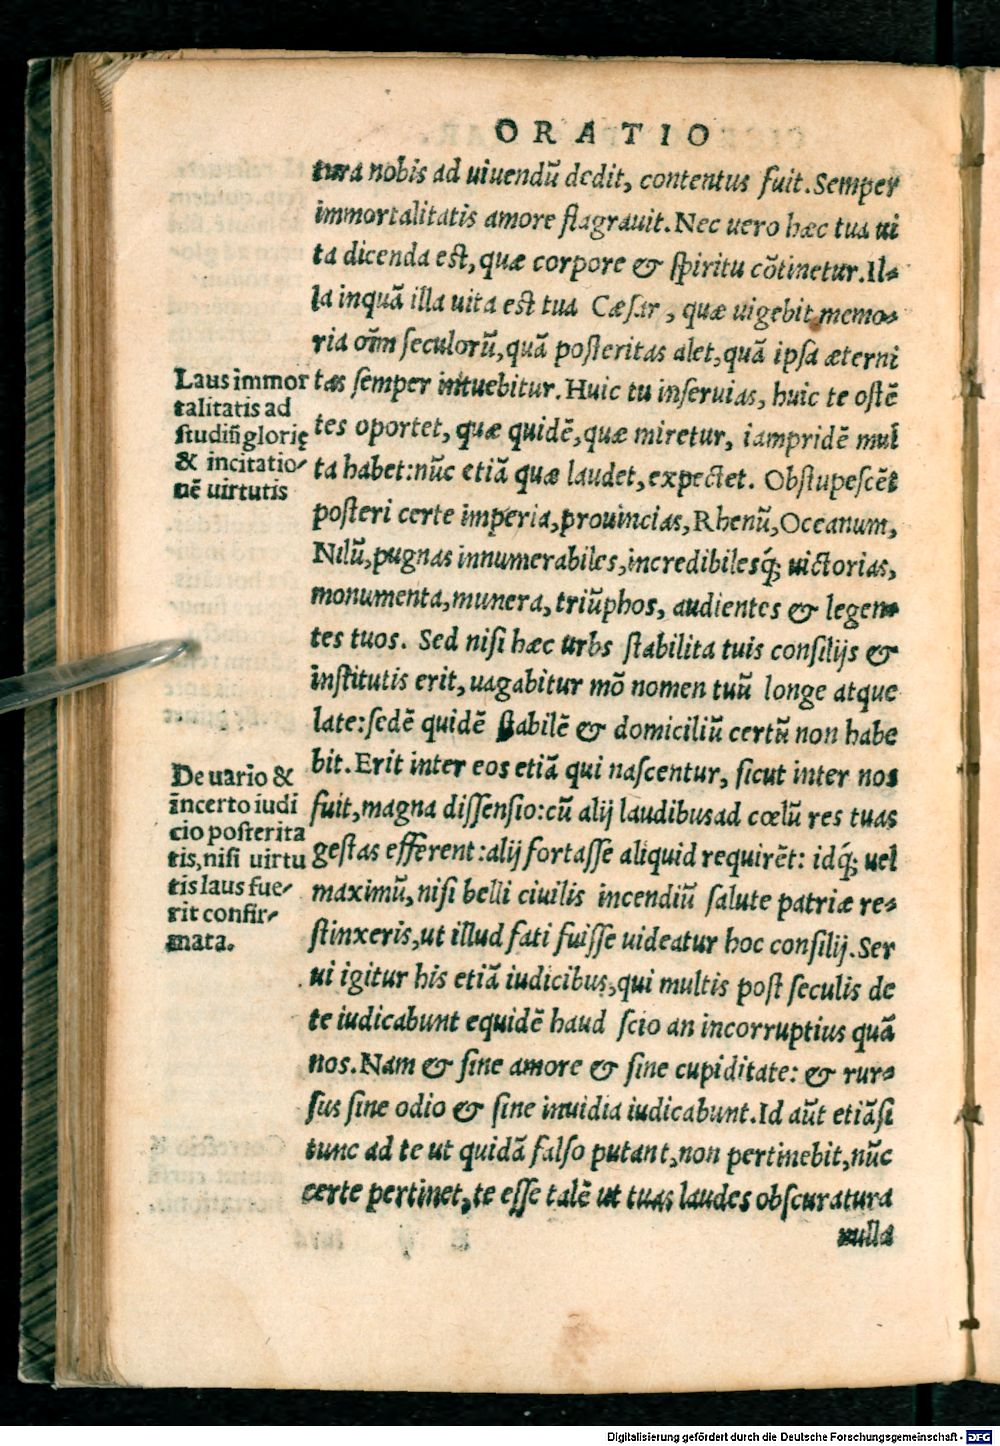 ORATIO
tura nobis ad uiuendū dedit, contentus fuit. Semper
immortalitatis amore flagrauit. Nec uero hæc tua ui
ta dicenda est, quæ corpore & spiritu cōtinetur. Il-
la inquā illa uita est tua Cæsar, quæ uigebit memo-
ria oīm seculorū, quā posteritas alet, quā ipsa æterni
tas semper intuebitur. Huic tu inseruias, huic te ostē
tes oportet, quæ quidē, quæ miretur, iampridē mul
ta habet: nūc etiā quæ laudet, expectet. Obstupescēt
posteri certe imperia, prouincias, Rhenū, Oceanum,
Nilū, pugnas innumerabiles, incredibilesq́; uictorias,
monumenta, munera, triūphos, audientes & legen-
tes tuos. Sed nisi hæc urbs stabilita tuis consilijs &
institutis erit, uagabitur mō nomen tuū longe atque
late: sedē quidē stabilē & domiciliū certū non habe
bit. Erit inter eos etiā qui nascentur, sicut inter nos
fuit, magna dissensio: cū alij laudibus ad cœlū res tuas
gestas efferent: alij fortasse aliquid requirēt: idq́; uel
maximū, nisi belli ciuilis incendiū salute patriæ re-
stinxeris, ut illud fati fuisse uideatur hoc consilij. Ser
ui igitur his etiā iudicibus, qui multis post seculis de
te iudicabunt equidē haud scio an incorruptius quā
nos. Nam & sine amore & sine cupiditate: & rur-
sus sine odio & sine inuidia iudicabunt. Id aūt etiāsi
tunc ad te ut quidā falso putant, non pertinebit, nūc
certe pertinet, te esse talē ut tuas laudes obscuratura
nulla
Laus immor
talitatis ad
studiū glorię
& incitatio-
nē uirtutis
De uario &
incerto iudi
cio posterita
tis, nisi uirtu
tis laus fue-
rit confir-
mata.
Digitalisierung gefördert durch die Deutsche Forschungsgemeinschaft - DFG